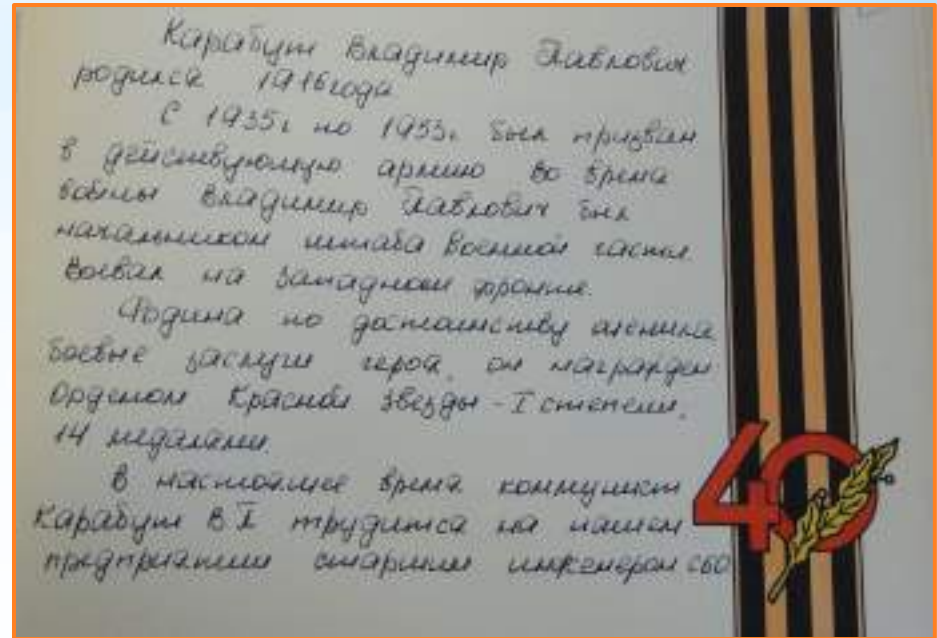 Карабут Владимир Павлович
родился 1916 года
С 1935г по 1953г был призван
в действующую армию во время
войны Владимир Павлович был
начальником штаба Военной части
Воевал на Западном фронте.
Родина по достоинству оценила
боевые заслуги героя, он награжден
Орденом Красной Звезды - I степени,
14 медалями.
В настоящее время коммунист
Карабут В П трудится на нашем
предприятии старшим инженером СБО
40